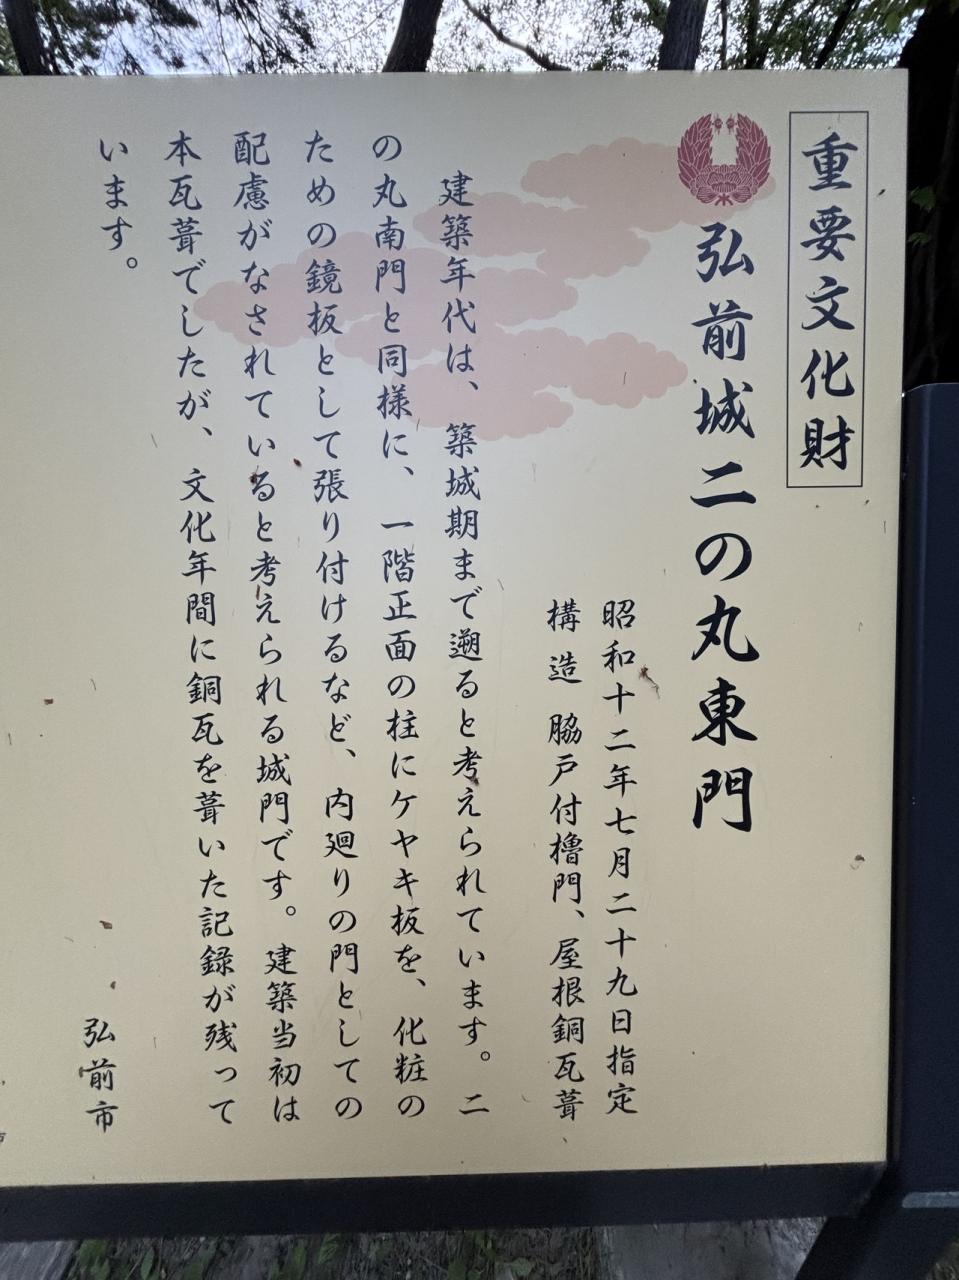 重要文化財
弘前城二の丸東門
昭和十二年七月二十九日指定
構造 脇戸付櫓門、屋根銅瓦葺
建築年代は、築城期まで遡ると考えられています。二
の丸南門と同様に、一階正面の柱にケヤキ板を、化粧の
ための鏡板として張り付けるなど、内廻りの門としての
配慮がなされていると考えられる城門です。建築当初は
本瓦葺でしたが、文化年間に銅瓦を葺いた記録が残って
います。
弘前市